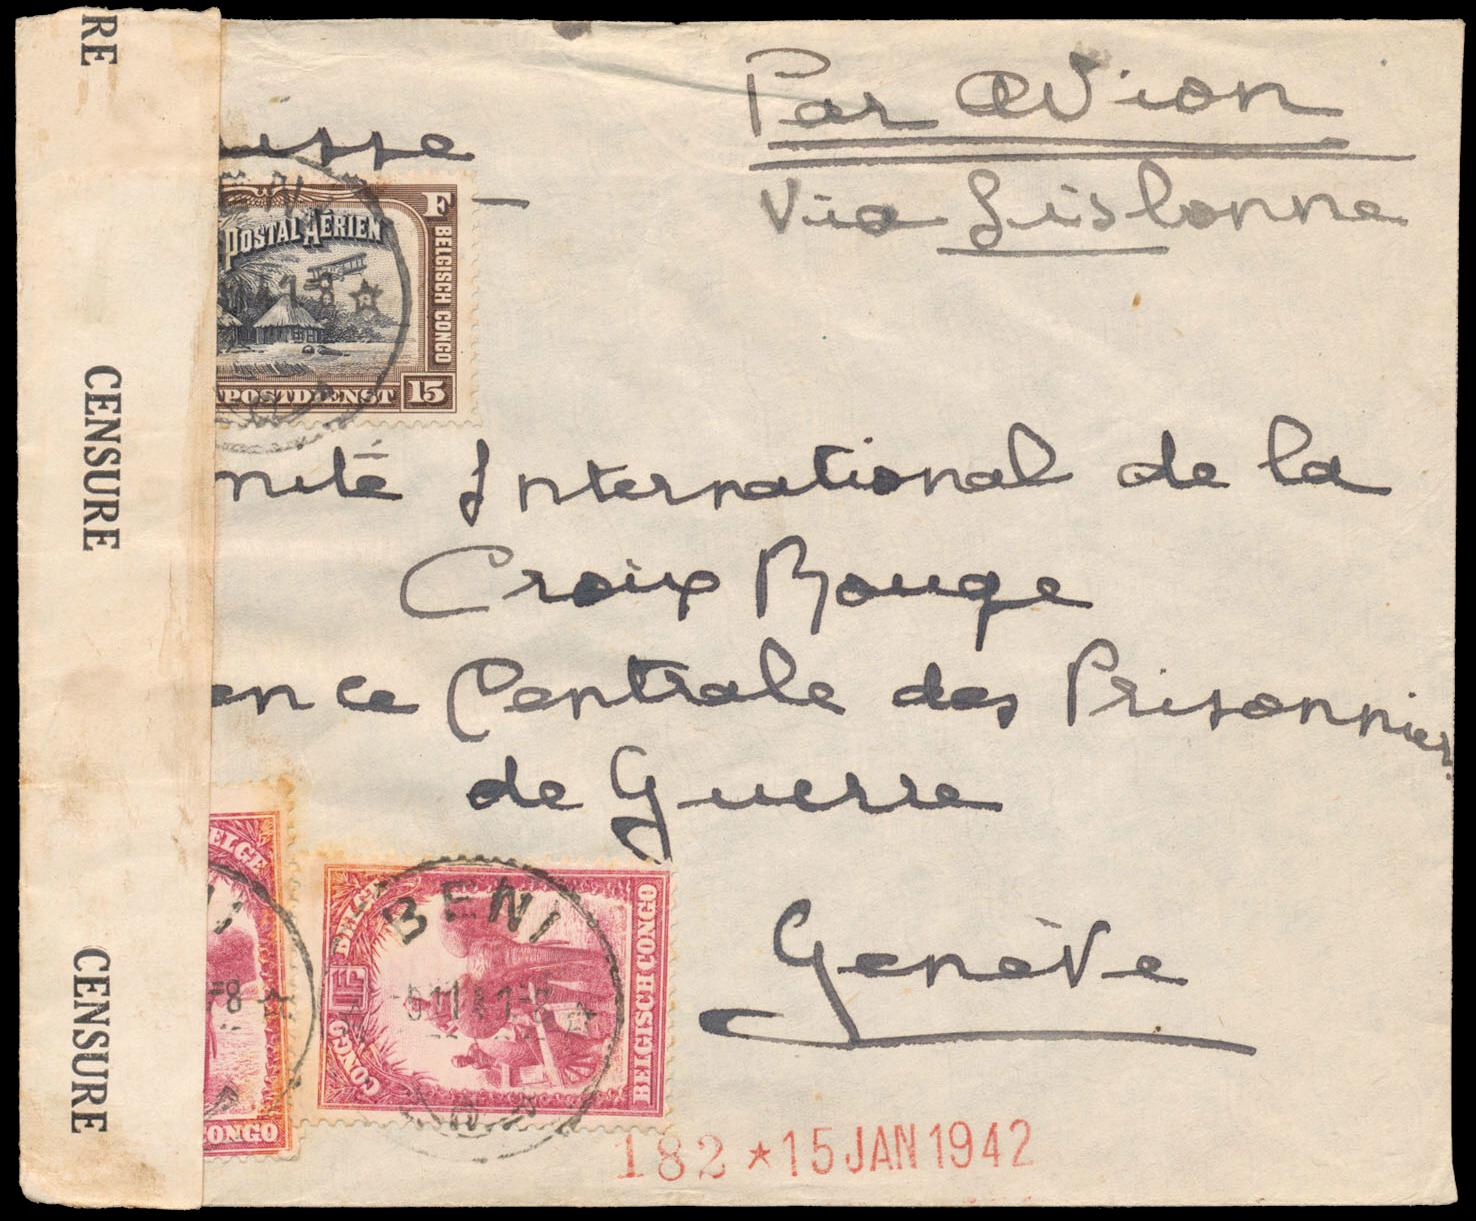 RE
CENSURE
CENSURE
Par avion
Via Lisbonne
POSTAL AÉRIEN
F
BELGISCH CONGO
POSTDIENST 15
mité International de la
Croix Rouge
ence Centrale des Prisonniers
de Guerre
Genève
ELGE
-8
ONGO
BENI
CONGO BELGE
1F
BELGISCH CONGO
182 ★ 15 JAN 1942